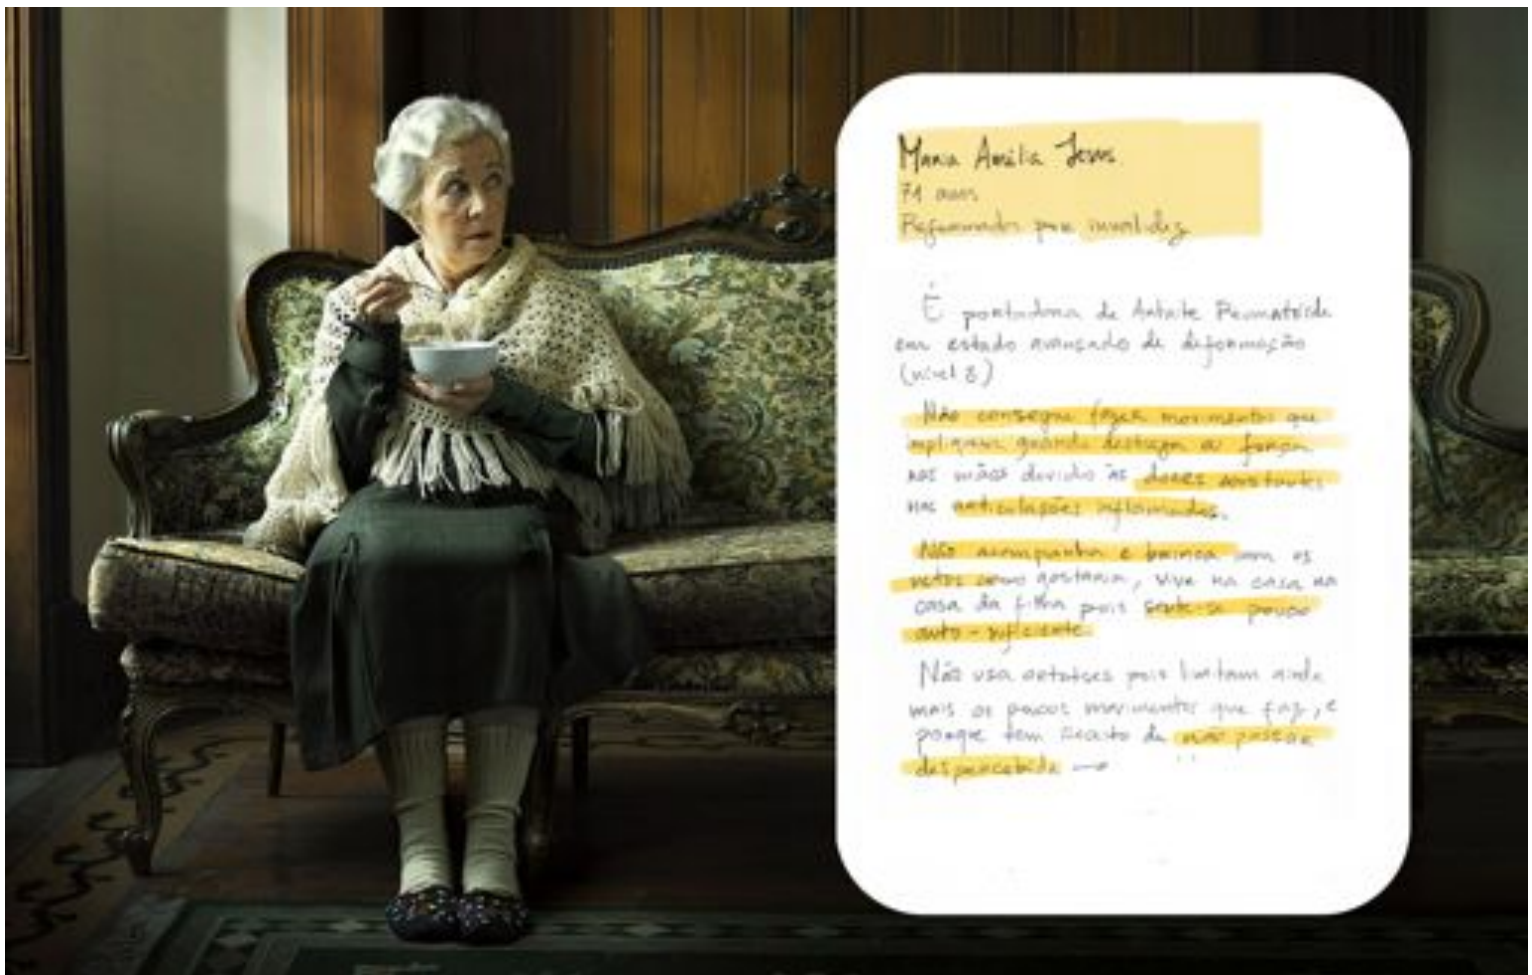 Maria Amélia
71 anos
Reformada por invalidez
É portadora de Artrite Reumatóide
em estado avançado de deformação
(nível 8)
Não consegue fazer movimentos que
impliquem grande destreza ou força
nas mãos devido às dores constantes
nas articulações inflamadas.
Não acompanha e brinca com os
netos como gostaria, vive na casa na
casa da filha pois sente-se pouco
auto-suficiente.
Não usa ortóteses pois limitam ainda
mais os poucos movimentos que faz, e
porque tem receio de não passar
despercebida →